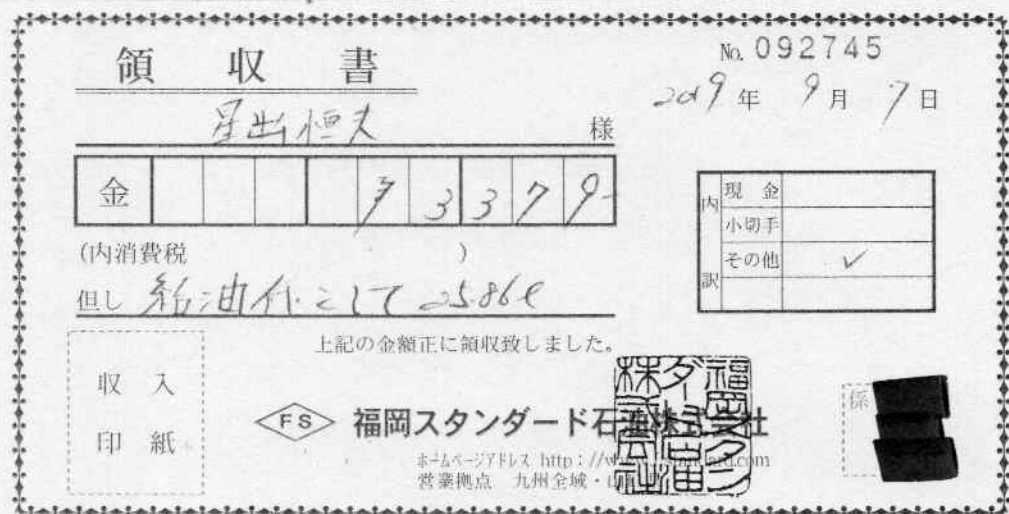 領収書
No. 092745
2019年 9月 7日
星出恒夫 様
金 ¥3379-
(内消費税 )
但し 給油代として 25.86ℓ
内訳
現金
小切手
その他 ✓
上記の金額正に領収致しました。
収入
印紙
FS 福岡スタンダード石油株式会社
ホームページアドレス http://w
営業拠点 九州全域・山
係